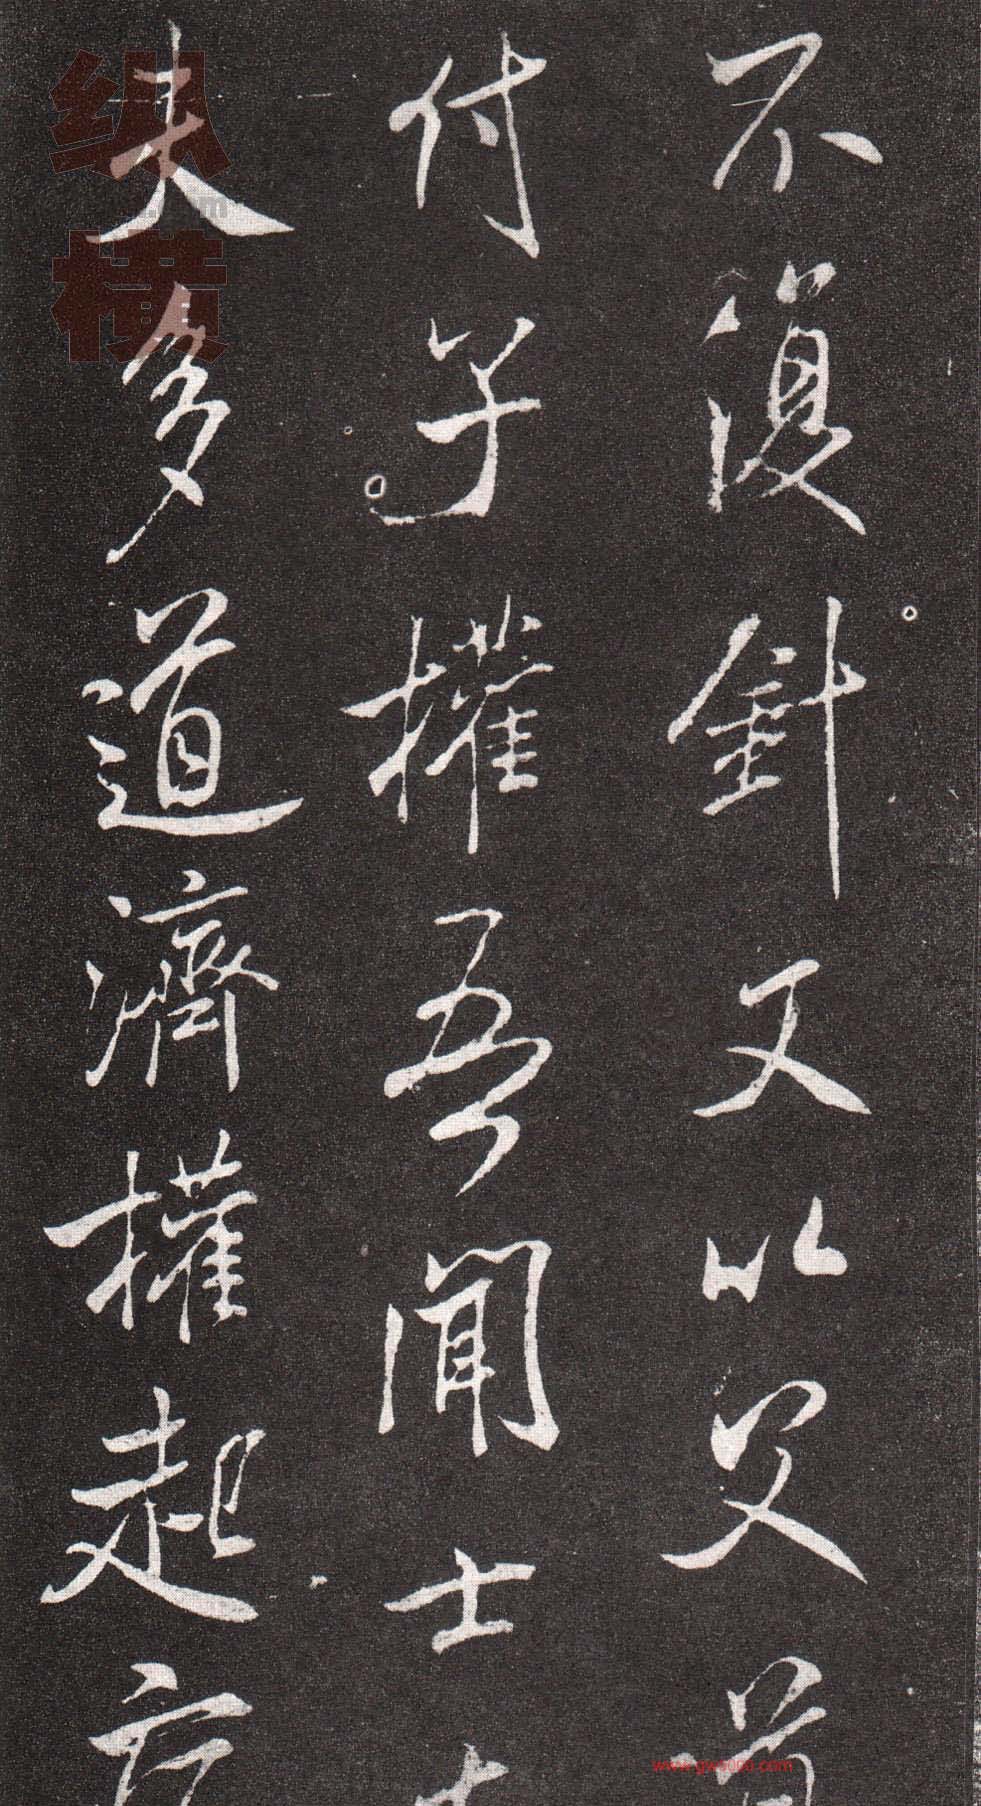 不復針文以父
付子權吾聞士
夫多道濟權起
纵横
www.gw8000.com